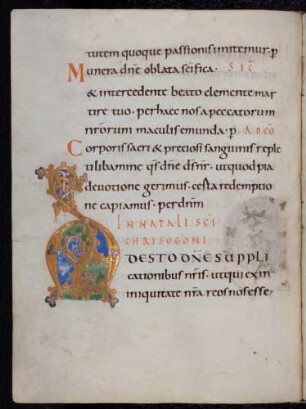 tutem quoque passionis imitemur. p
Munera dñe oblata scifica. SIC̄
& intercedente beato clemente mar
tire tuo. per haec nos a peccatorum
nrorum maculis emunda. p̄ AD CO
Corporis sacri & preciosi sanguinis reple
ti libamine. qs dñe ds nr. ut quod pia
devotione gerimus. certa redemptio
ne capiamus. per dnm
IN NATALI SCI
CHRISOGONI
ADESTO DÑE SUPPLI
cationibus nris. ut qui ex in
iniquitate nra reos nos esse